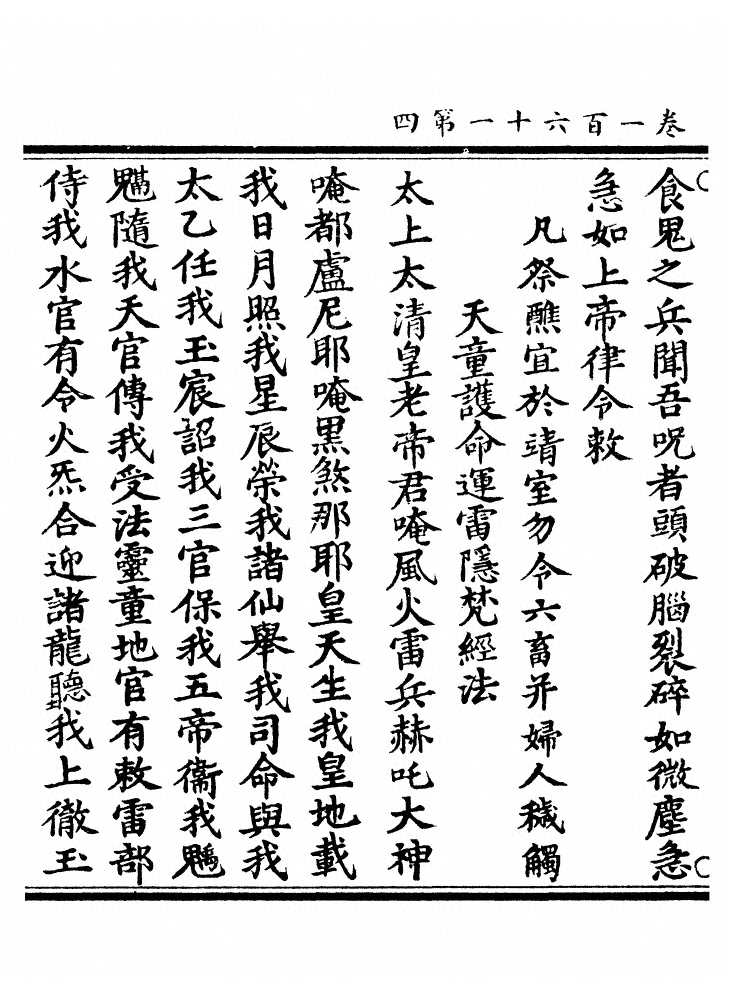 卷一百六十一第四
食鬼之兵聞吾呪者頭破腦裂碎如微塵急
急如上帝律令敕
凡祭醮宜於靖室勿令六畜并婦人穢觸
天童護命運雷隱梵經法
太上太清皇老帝君唵風火雷兵赫吒大神
唵都盧尼耶唵黑煞那耶皇天生我皇地載
我日月照我星辰榮我諸仙舉我司命與我
太乙任我玉宸詔我三官保我五帝衛我魁
魁隨我天官傳我受法靈童地官有敕雷部
侍我水官有令火炁合迎諸龍聽我上徹玉